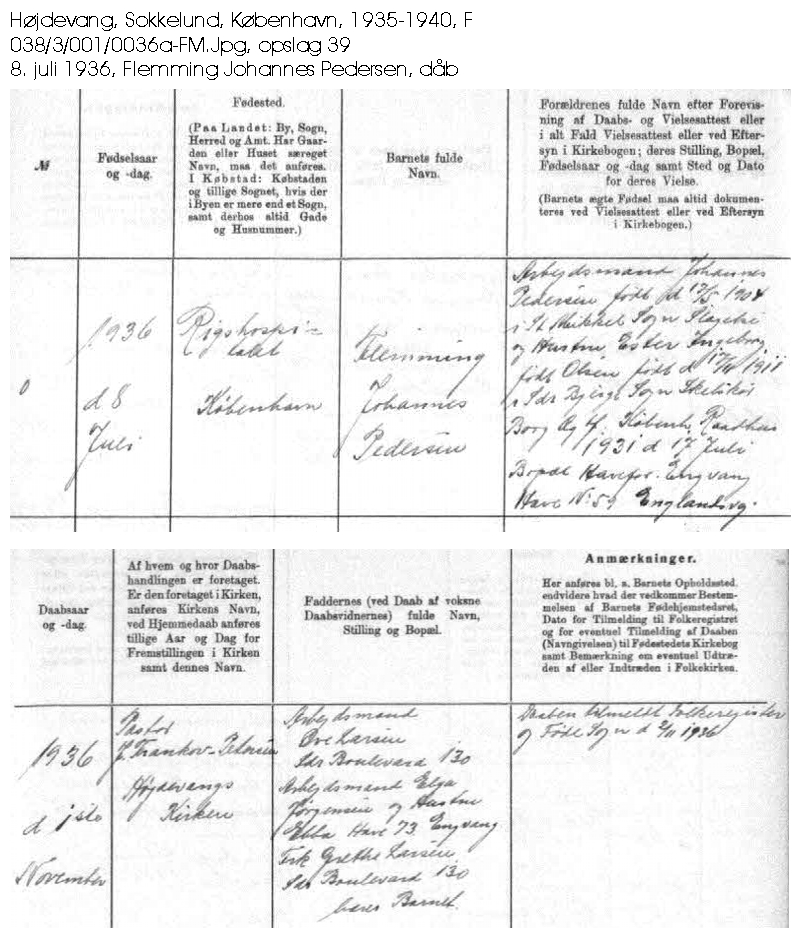 Højdevang, Sokkelund, København, 1935-1940, F
038/3/001/0036a-FM.Jpg, opslag 39
8. juli 1936, Flemming Johannes Pedersen, dåb
№
Fødselsaar
og -dag.
Fødested.
(Paa Landet: By, Sogn,
Herred og Amt. Har Gaar-
den eller Huset særeget
Navn, maa det anføres.
I Købstad: Købstaden
og tillige Sognet, hvis der
i Byen er mere end et Sogn,
samt derhos altid Gade
og Husnummer.)
Barnets fulde
Navn.
Forældrenes fulde Navn efter Forevis-
ning af Daabs- og Vielsesattest eller
i alt Fald Vielsesattest eller ved Efter-
syn i Kirkebogen; deres Stilling, Bopæl,
Fødselsaar og -dag samt Sted og Dato
for deres Vielse.
(Barnets ægte Fødsel maa altid dokumen-
teres ved Vielsesattest eller ved Eftersyn
i Kirkebogen.)
1936
d 8
Juli
Rigshospi-
talet
København
Flemming
Johannes
Pedersen
Arbejdsmand Johannes
Pedersen født d 17/5 1904
i St Mikkel Sogn Slagelse
og Hustru Ester Ingeborg
født Olsen født d 17/4 1911
i Sdr Bjerge Sogn Skelskør
Borg Københ. Raadhus
1931 d 17 Juli
Bopæl Havefor. Engvang
Have No 59 Englandsvej.
Daabsaar
og -dag.
Af hvem og hvor Daabs-
handlingen er foretaget.
Er den foretaget i Kirken,
anføres Kirkens Navn,
ved Hjemmedaab anføres
tillige Aar og Dag for
Fremstillingen i Kirken
samt dennes Navn.
Faddernes (ved Daab af voksne
Daabsvidnernes) fulde Navn,
Stilling og Bopæl.
Anmærkninger.
Her anføres bl. a. Barnets Opholdssted,
endvidere hvad der vedkommer Bestem-
melsen af Barnets Fødehjemstedsret,
Dato for Tilmelding til Folkeregistret
og for eventuel Tilmelding af Daaben
(Navngivelsen) til Fødestedets Kirkebog
samt Bemærkning om eventuel Udtræ-
den af eller Indtræden i Folkekirken.
1936
d 1ste
November
Pastor
J. Frankov-Petersen
Højdevangs
Kirken
Arbejdsmand
Ove Larsen
Sdr Boulevard 130
Arbejdsmand Elga
Jørgensen og Hustru
Ebba Have 73 Engvang
Frk Grethe Larsen
Sdr Boulevard 130
bares Barnet.
Daaben tilmeldt Folkeregister
og Føde Sogn d 2/11 1936